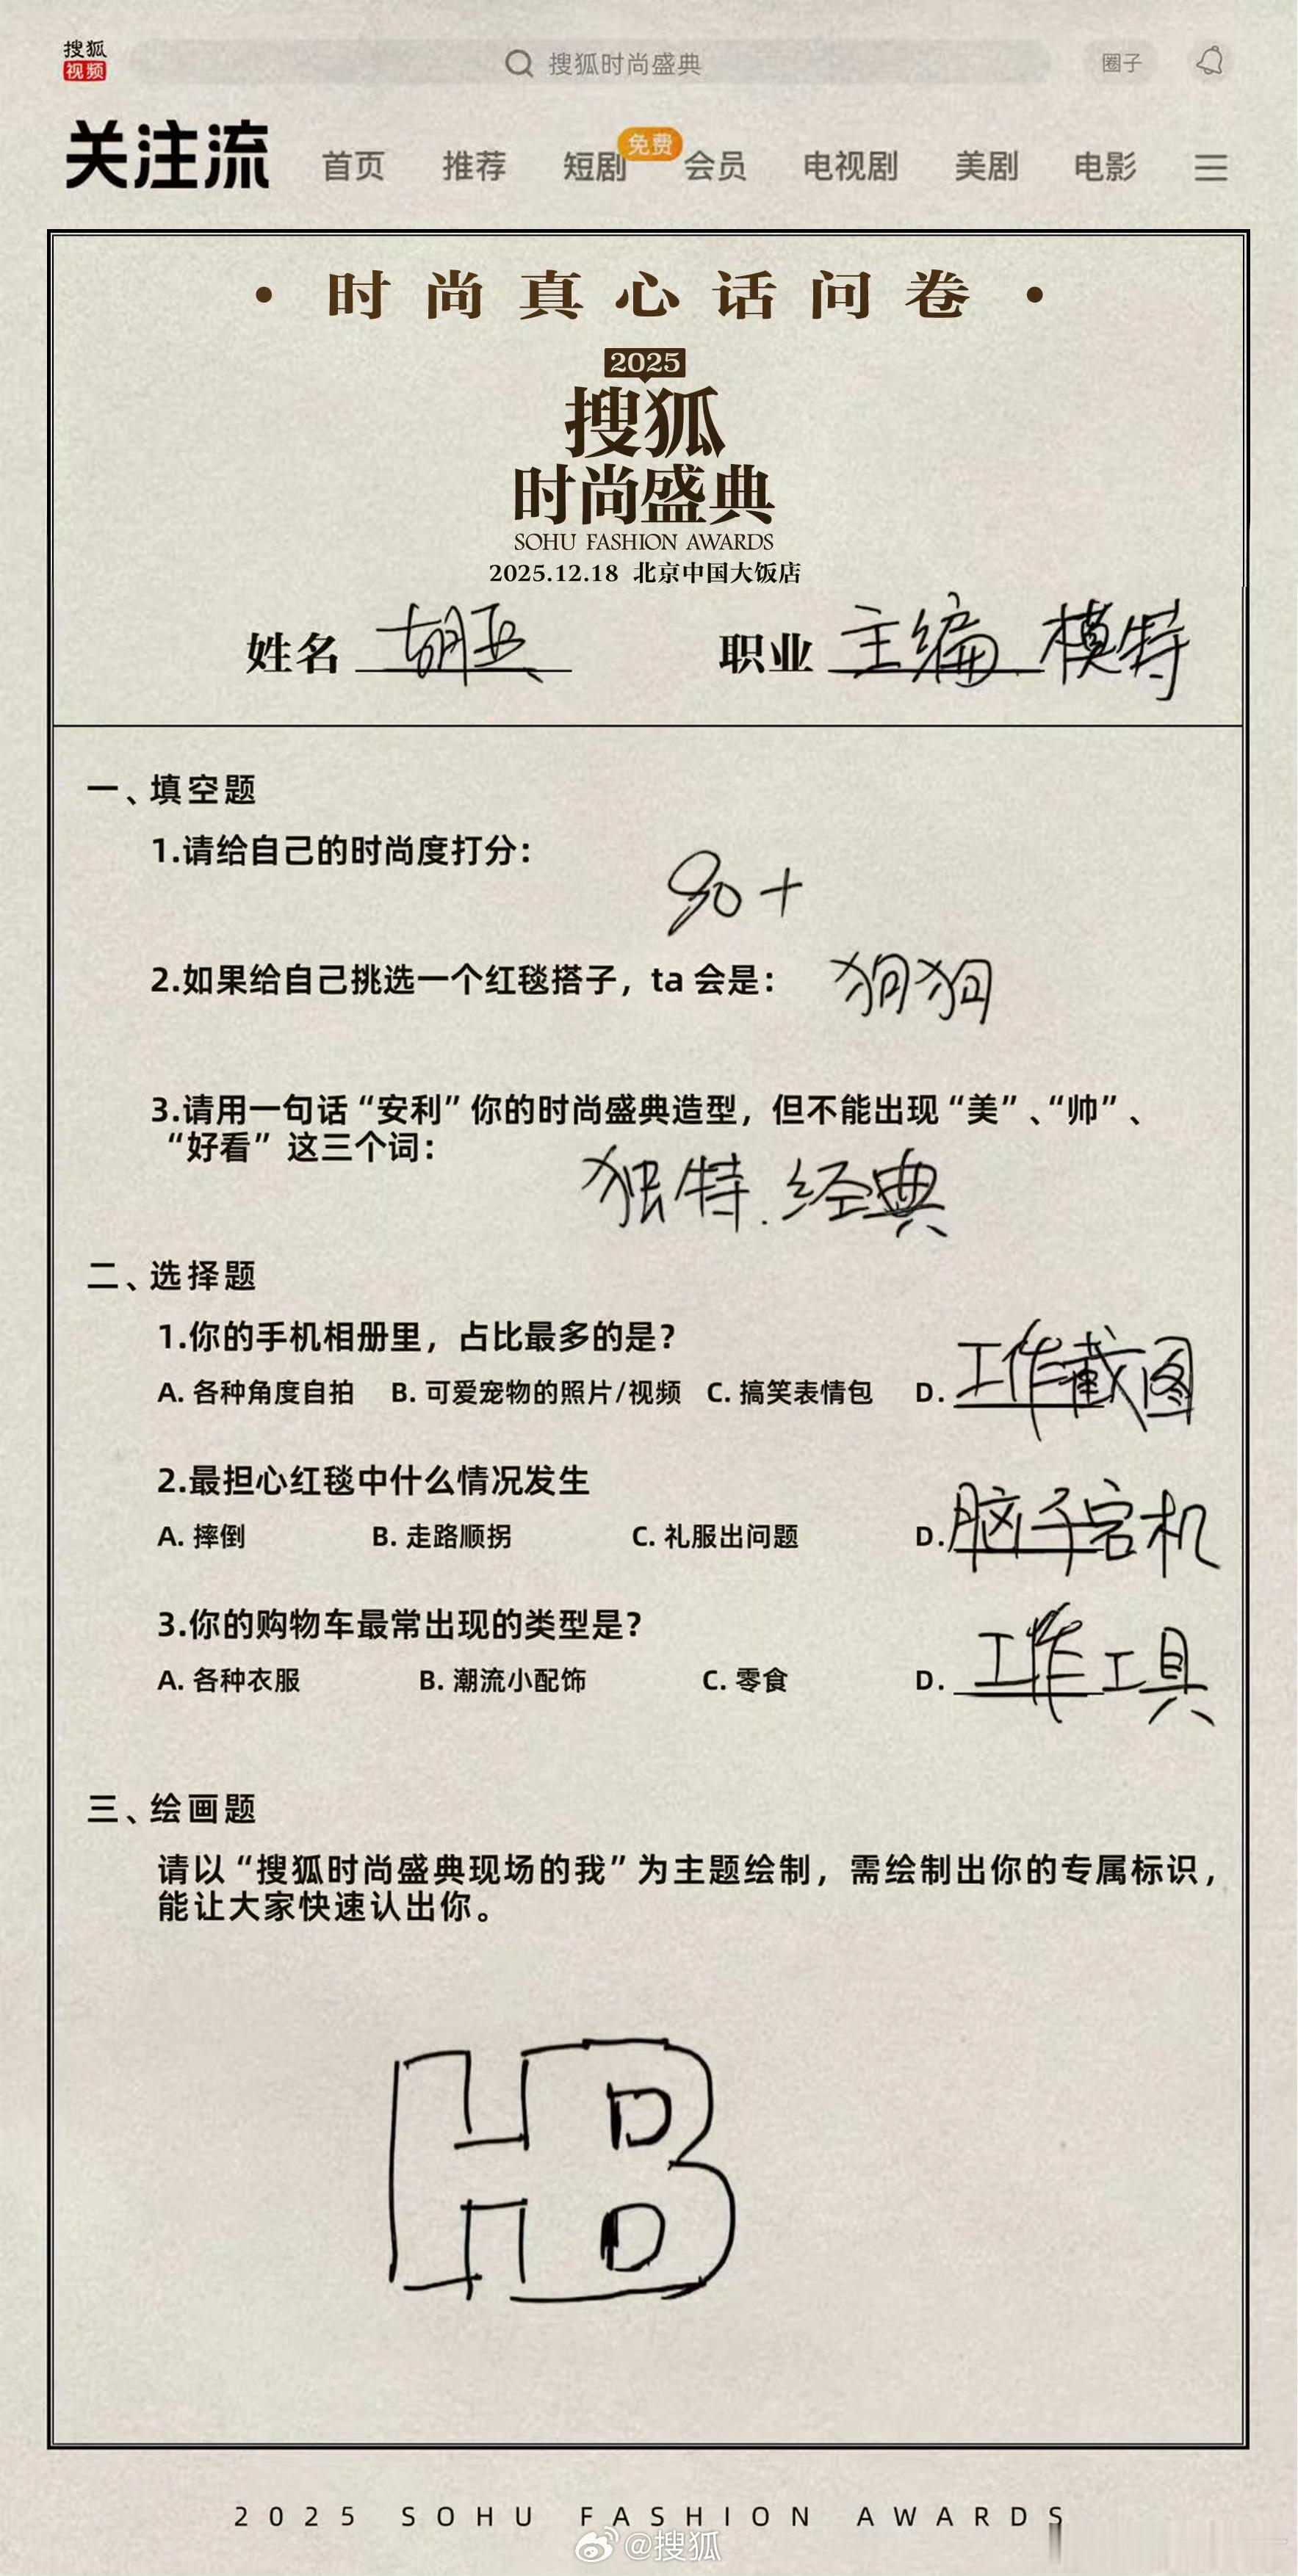 搜狐
视频
搜狐时尚盛典 圈子
关注流 首页 推荐 短剧 免费 会员 电视剧 美剧 电影
· 时尚真心话问卷 ·
2025
搜狐
时尚盛典
SOHU FASHION AWARDS
2025.12.18 北京中国大饭店
姓名 胡兵 职业 主编 模特
一、填空题
1.请给自己的时尚度打分：
90+
2.如果给自己挑选一个红毯搭子，ta 会是： 狗狗
3.请用一句话“安利”你的时尚盛典造型，但不能出现“美”、“帅”、
“好看”这三个词：
独特.经典
二、选择题
1.你的手机相册里，占比最多的是？
A. 各种角度自拍 B. 可爱宠物的照片/视频 C. 搞笑表情包 D. 工作截图
2.最担心红毯中什么情况发生
A. 摔倒 B. 走路顺拐 C. 礼服出问题 D. 脑子宕机
3.你的购物车最常出现的类型是？
A. 各种衣服 B. 潮流小配饰 C. 零食 D. 工作工具
三、绘画题
请以“搜狐时尚盛典现场的我”为主题绘制，需绘制出你的专属标识，
能让大家快速认出你。
HB
2025 SOHU FASHION AWARDS
@搜狐